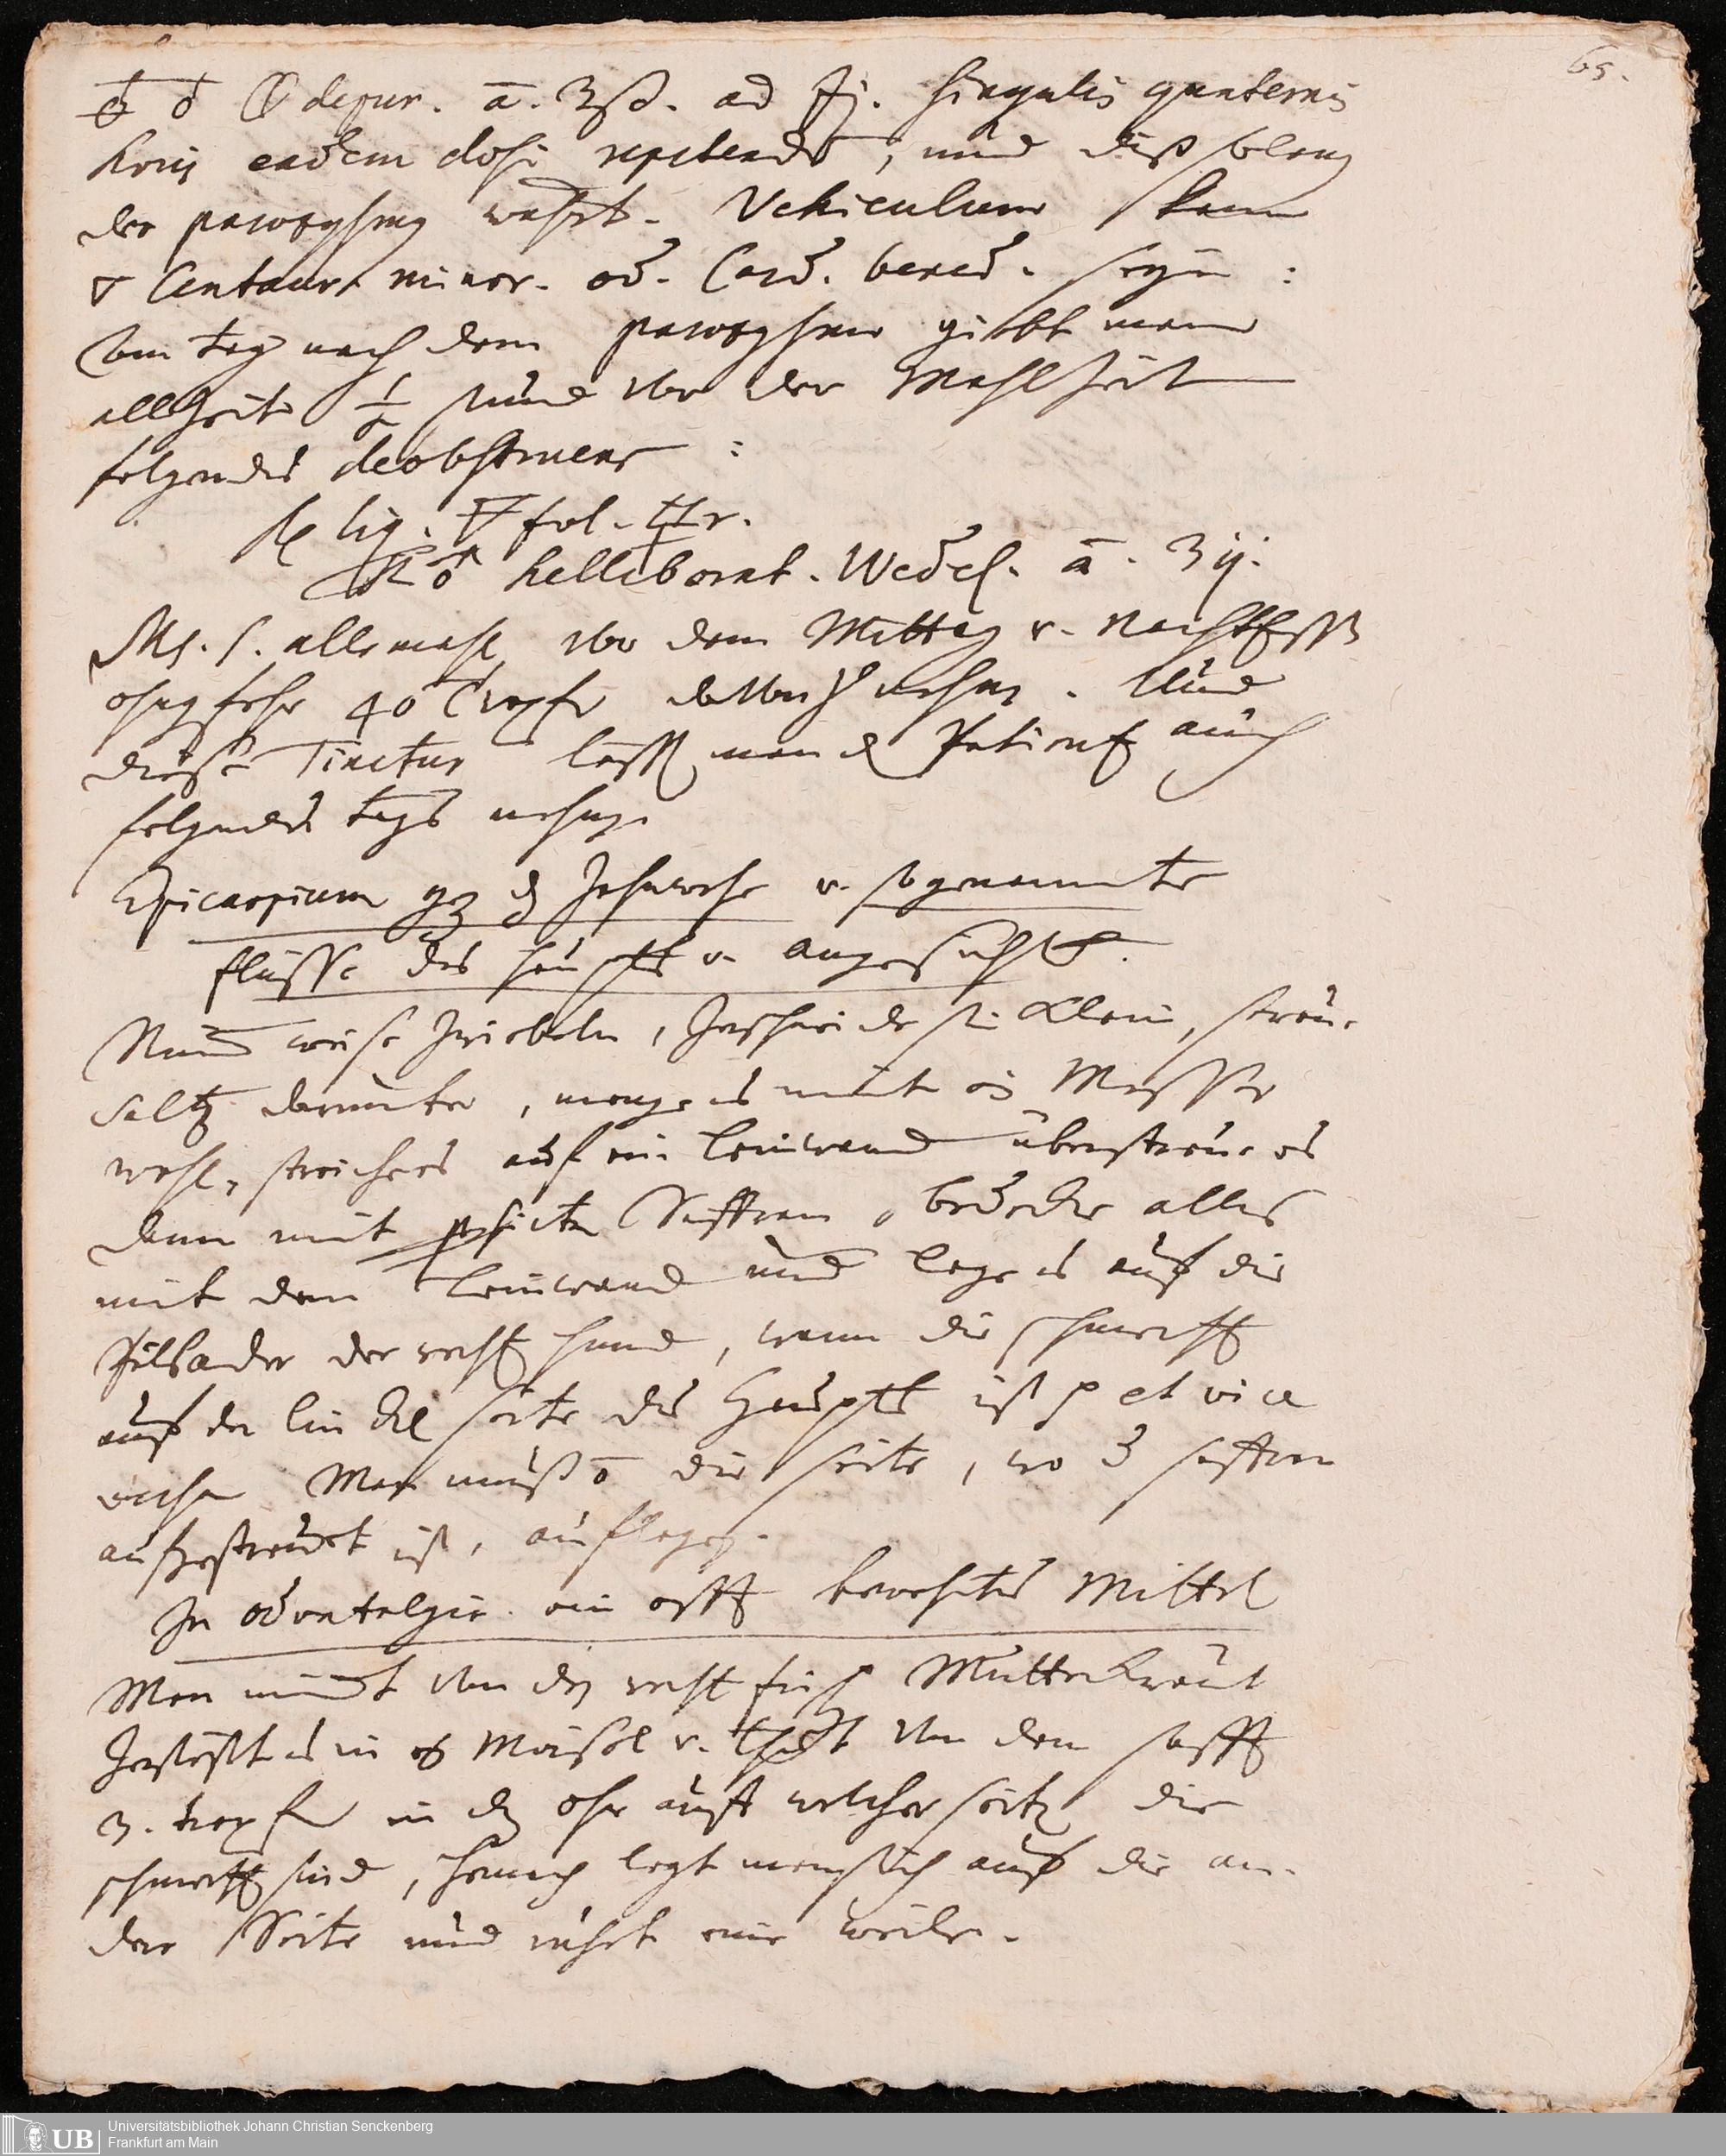 65.
depur. ā. ʒß. ad ʒj. singulis quaternis
horis eadem dosi repetendo, und diß solang
der paroxysmus wehrt. Vehiculum kann
▽ Centaur. minor. od. Card. bened. seyn:
Am tag nach dem paroxysmo gibbt man
allzeit ½ stund vor der Mahlzeit
folgendes deobstruens:
℞ liq. fol. ♁r.
♂ helleborat. Wedel. ā. ʒij.
MS. allemahl vor dem Mittag u. Nachtessen
ohngefehr 40 Tropfen davon zu nehmen. Und
diese Tinctur läßt man den Patienten auch
folgendes tags nehmen.
Epicarpium gegen das Zahnwehe u. sogenannte
flüsse des haupts u. angesichts.
Nimm weise Zwiebeln, zerschneide sie klein, streue
saltz darunter, menge es mit ein Messer
wohl, streiche es auf ein leinwand überstreue es
dann mit Saffran, bedecke alles
mit dem leinwand und lege es auf die
Pulsader der rechten hand, wann die schmertzen
auf der lincken seite des Haupts ist, et vice
versa. Man muß die seite, wo der saffran
aufgestreuet ist, auflegen.
In odontalgia ein offt bewehrtes Mittel
Man nimmt von den recht frisch Mutterkraut
zerstößt es in ein Mörsel u. thut von dem safft
3. tropfen in das ohr auff welcher seiten die
schmertzen sind, hernach legt man sich auf die an-
dere Seite und ruhet eine weile.
UB
Universitätsbibliothek Johann Christian Senckenberg
Frankfurt am Main